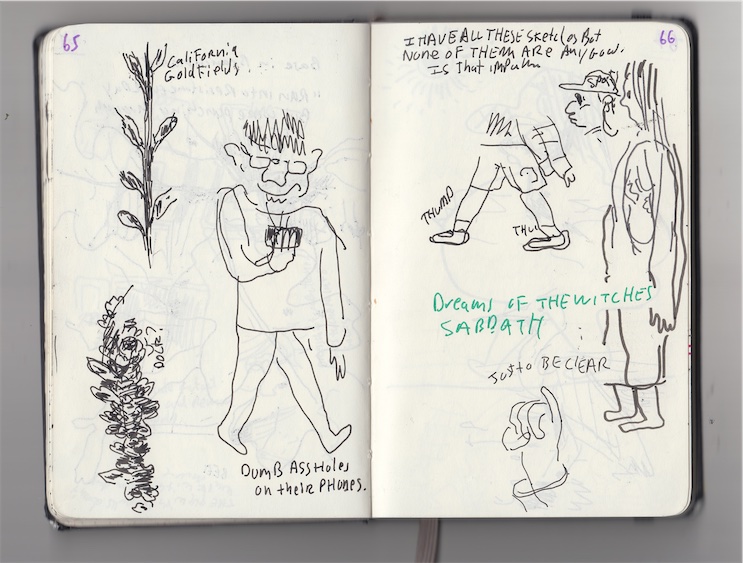 65
California
GoldFields.
DOCK?
DumB AssHoles
on their PHONES.
66
I HAVE ALL THESE Sketches But
NONE OF THEM ARE Any Good.
Is That
THUMP
THU
Dreams OF THE WITCHES
SABBATH
Just to BE CLEAR